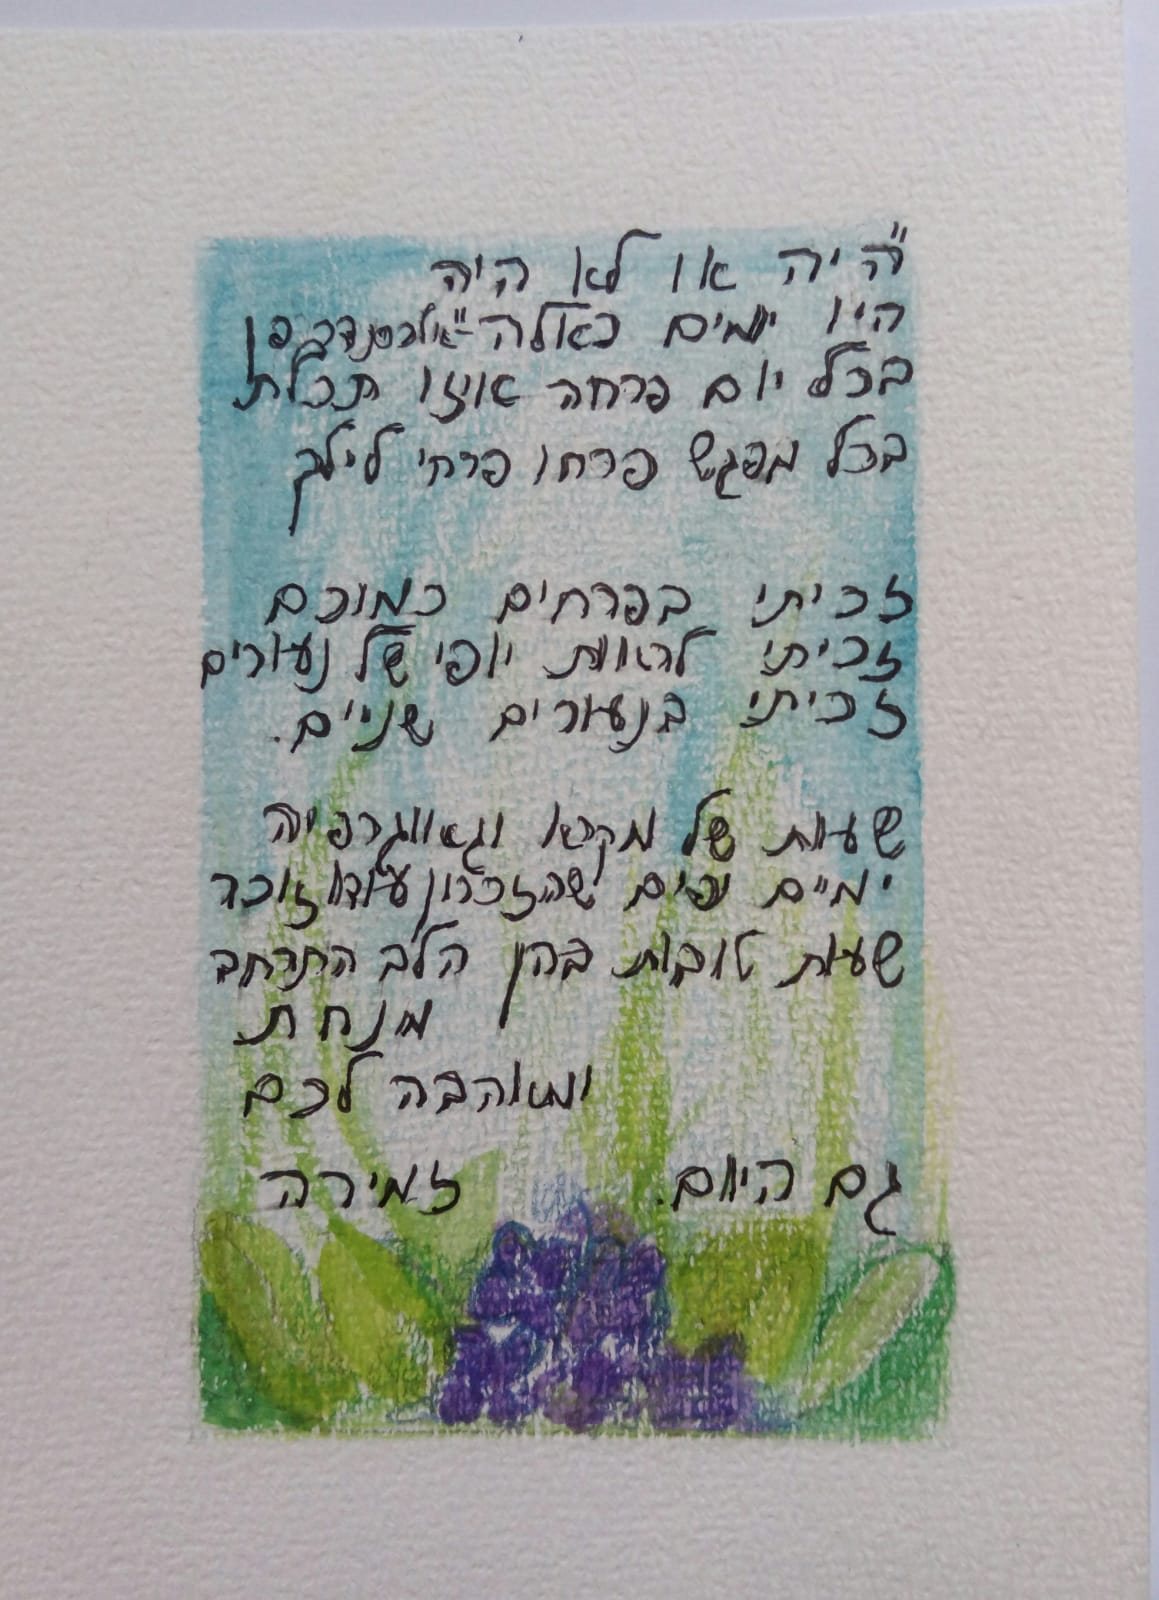 "היה או לא היה
היו ימים כאלה"-אלכסנדר פן
בכל יום פרחה איזו תכלת
בכל מפגש פרחו פרחי לילך
זכיתי בפרחים כמוכם
זכיתי לראות יופי של נעורים
זכיתי בנעורים שניים.
שעות של מקרא וגאוגרפיה
ימים יפים שהזכרון עודו זוכר
שעות טובות בהן הלב התרחב
מנחת
ומאהבה לכם
גם היום. זמירה